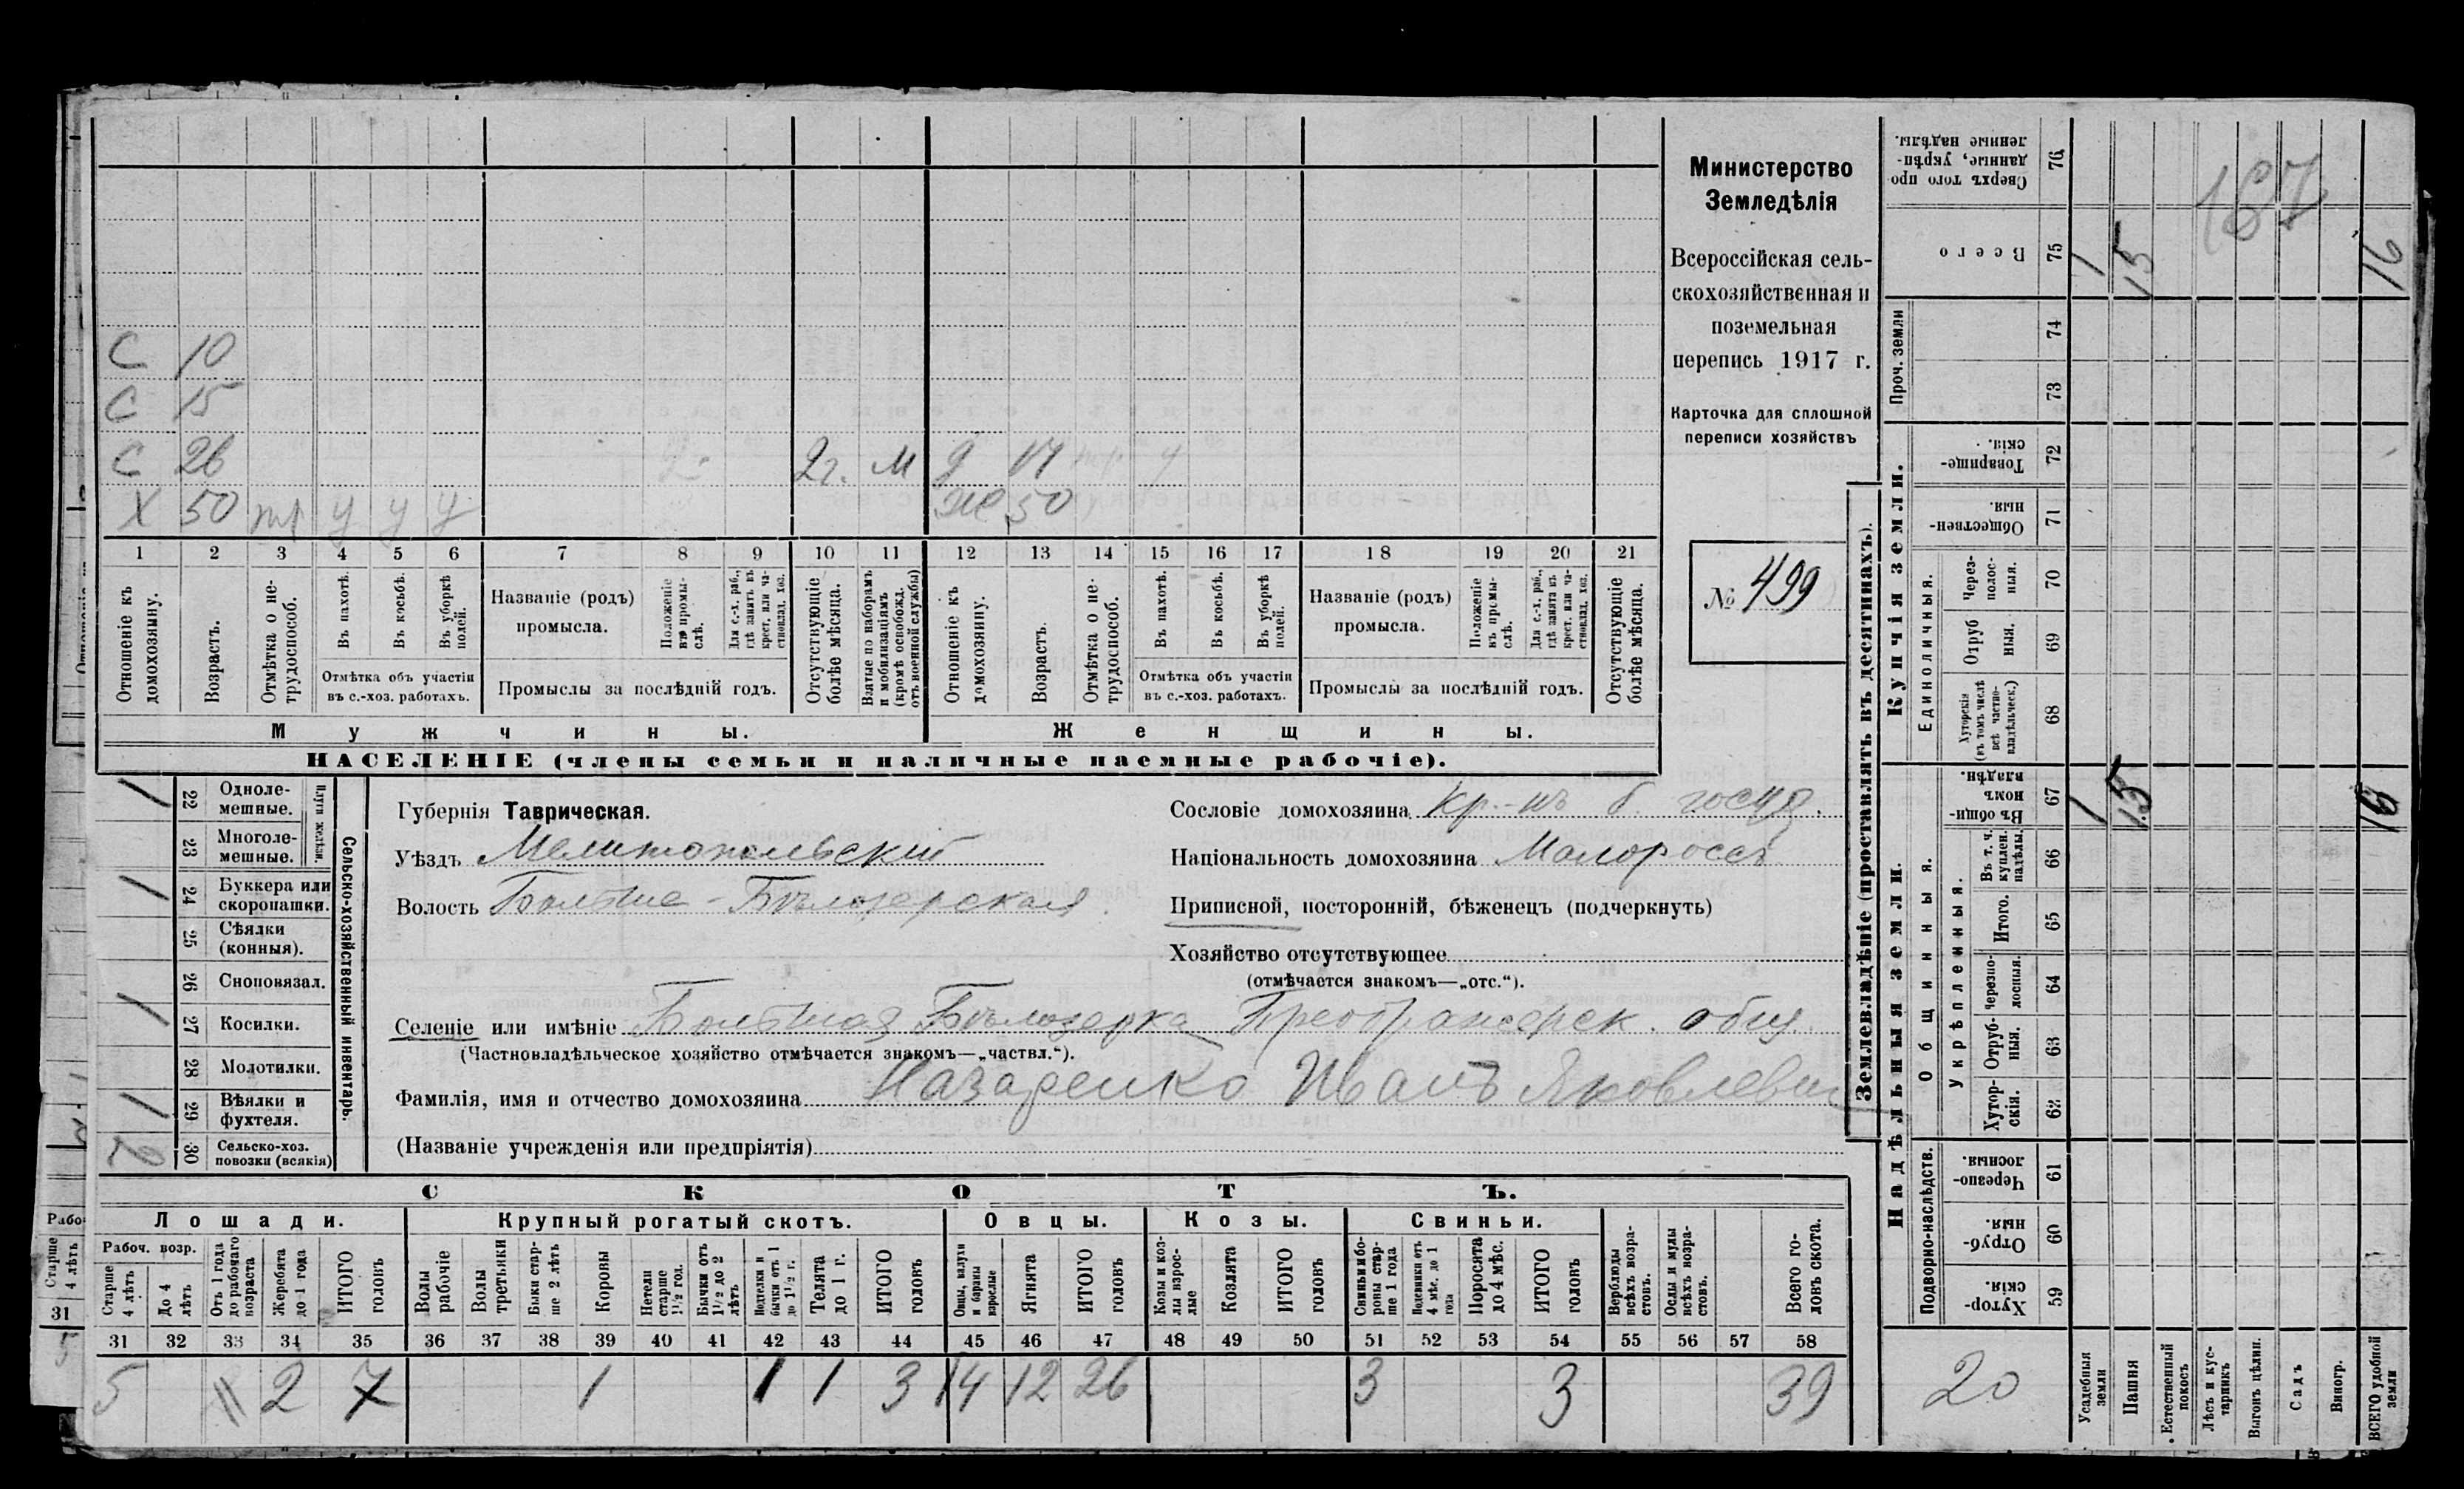 С 10
С 15
С 26 2г. М д 17 тр у
Х 50 тр у у у Же 50
1 2 3 4 5 6 7 8 9 10 11 12 13 14 15 16 17 18 19 20 21
Отношеніе къ домохозяину.
Возрастъ.
Отмѣтка о не-трудоспособ.
Въ пахотѣ.
Въ косьбѣ.
Въ уборкѣ полей.
Отмѣтка объ участіи
въ с.-хоз. работахъ.
Названіе (родъ)
промысла.
Положеніе въ промы-слѣ.
Для с.-х. раб., гдѣ занятъ въ крест. или ча-стновлад. хоз.
Промыслы за послѣдній годъ.
Отсутствующіе болѣе мѣсяца.
Взятые по наборамъ и мобилизаціямъ (кромѣ освобожд. отъ военной службы)
Отношеніе къ домохозяину.
Возрастъ.
Отмѣтка о не-трудоспособ.
Въ пахотѣ.
Въ косьбѣ.
Въ уборкѣ полей.
Отмѣтка объ участіи
въ с.-хоз. работахъ.
Названіе (родъ)
промысла.
Положеніе въ промы-слѣ.
Для с.-х. раб., гдѣ занята въ крест. или ча-стновлад. хоз.
Промыслы за послѣдній годъ.
Отсутствующіе болѣе мѣсяца.
Мужчины. Женщины.
НАСЕЛЕНІЕ (члены семьи и наличные наемные рабочіе).
Министерство
Земледѣлія
Всероссійская сель-
скохозяйственная и
поземельная
перепись 1917 г.
Карточка для сплошной
переписи хозяйствъ
№ 499
1 22 Одноле-мешные.
23 Многоле-мешные.
Плуги желѣзн.
1 24 Буккера или скоропашки.
25 Сѣялки (конныя).
26 Сноповязал.
1 27 Косилки.
28 Молотилки.
1 29 Вѣялки и фухтеля.
30 Сельско-хоз. повозки (всякія)
Сельско-хозяйственный инвентарь.
Губернія Таврическая.
Уѣздъ Мелитопольскій
Волость Больше-Бѣлозерская
Сословіе домохозяина кр.-нъ б. госуд.
Національность домохозяина Малороссъ
Приписной, посторонній, бѣженецъ (подчеркнуть)
Хозяйство отсутствующее
(отмѣчается знакомъ—„отс.“).
Селеніе или имѣніе Большая Бѣлозерка Преображенск. общ.
(Частновладѣльческое хозяйство отмѣчается знакомъ—„частвл.“).
Фамилія, имя и отчество домохозяина Назаренко Иванъ Яковлевич
(Названіе учрежденія или предпріятія)
СКОТЪ.
Лошади. Крупный рогатый скотъ. Овцы. Козы. Свиньи.
Рабоч. возр.
Старше 4 лѣтъ
До 4 лѣтъ
Отъ 1 года до рабочаго возраста
Жеребята до 1 года
ИТОГО головъ
Волы рабочіе
Волы третьяки
Быки стар-ше 2 лѣтъ
Коровы
Нетели старше 1½ год.
Бычки отъ 1½ до 2 лѣтъ
Подтелки и бычки отъ 1 до 1½ г.
Телята до 1 г.
ИТОГО головъ
Овцы, валухи и бараны взрослые
Ягнята
ИТОГО головъ
Козы и коз-лы взрос-лые
Козлята
ИТОГО головъ
Свиньи и бо-ровы стар-ше 1 года
Подсвинки отъ 4 мѣс. до 1 года
Поросята до 4 мѣс.
ИТОГО головъ
Верблюды всѣхъ возра-стовъ.
Ослы и мулы всѣхъ возра-стовъ.
Всего го-ловъ скота.
31 32 33 34 35 36 37 38 39 40 41 42 43 44 45 46 47 48 49 50 51 52 53 54 55 56 57 58
5 2 7 1 1 1 3 14 12 26 3 3 39
Рабо
Старше 4 лѣтъ
31
5
Землевладѣніе (проставлять въ десятинахъ).
Купчія земли.
Надѣльныя земли.
Сверхъ того про-данные, укрѣп-ленные надѣлы. 76
167
Всего 75 1 15 16
Проч. земли 74
73
Товарище-скія. 72
Обществен-ныя. 71
Единоличныя.
Через-полос-ныя. 70
Отруб ныя. 69
Хуторскія (въ томъ числѣ всѣ частно-владѣльческ.) 68
Общинныя.
Въ общи-номъ владѣн. 67 1 15 16
Укрѣпленныя.
Въ т. ч. куплен. надѣлы. 66
Итого. 65
Черезпо-лосныя. 64
Отруб-ныя. 63
Хутор-скія. 62
Подворно-наслѣдств.
Черезпо-лосныя 61
Отруб-ныя. 60
Хутор-скія. 59
20
Усадебныя земли
Пашня
Естественный покосъ
Лѣсъ и кус-тарникъ
Выгонъ цѣлин.
Садъ
Виногр.
ВСЕГО удобной земли